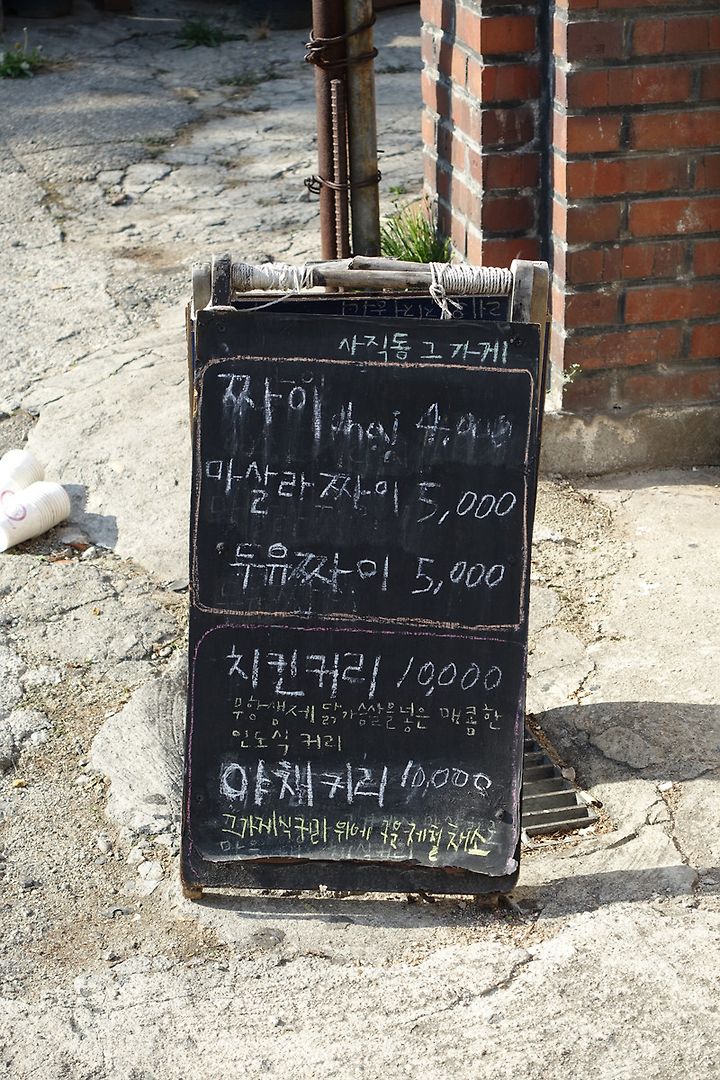 사직동 그 가게
짜이 chai 4,000
마살라 짜이 5,000
두유짜이 5,000
치킨커리 10,000
무항생제 닭가슴살을 넣은 매콤한
인도식 커리
야챈커리 10,000
그가게식커리 위에 구운 제철 채소